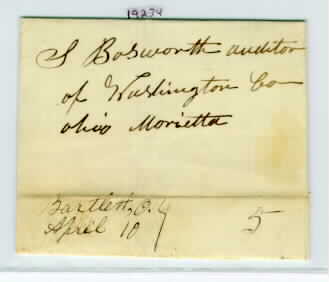 19234
S Bosworth auditor
of Washington Co
ohio Morietta
Bartlett, O.
April 10
5